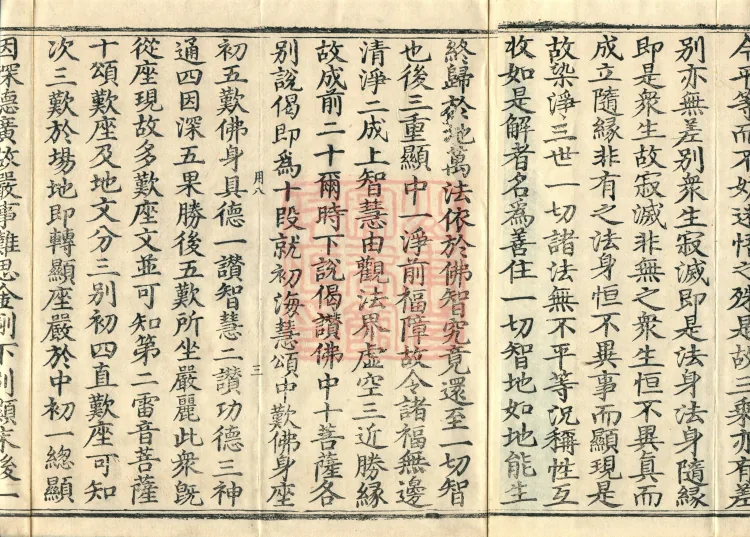 令平等而不如迷悟之殊是故三乘亦有差
別亦無差別衆生寂滅即是法身法身隨緣
即是衆生故寂滅非無之衆生恒不異真而
成立隨緣非有之法身恒不異事而顯現是
故染淨三世一切諸法無不平等況稱性互
收如是解者名爲善住一切智地如地能生
終歸於地萬法依於佛智究竟還至一切智
也後三重顯中一淨前福障故令諸福無邊
清淨二成上智慧由觀法界虛空三近勝緣
故成前二十爾時下說偈讚佛中十菩薩各
別說偈即爲十段就初海慧頌中歎佛身座
用八 三
初五歎佛身具德一讚智慧二讚功德三神
通四因深五果勝後五歎所坐嚴麗此衆旣
從座現故多歎座文並可知第二雷音菩薩
十頌歎座及地文分三別初四直歎座可知
次三歎於場地即轉顯座嚴於中初一總顯
因深德廣故嚴事難思金剛下別顯末後一